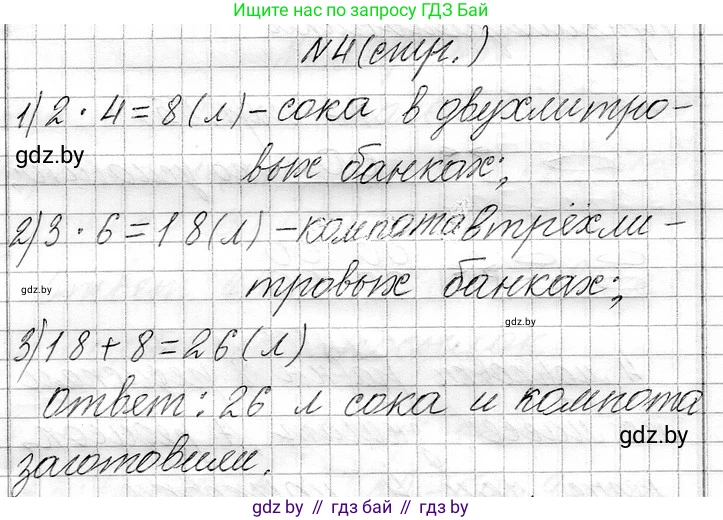 Ищите нас по запросу ГДЗ Бай
№4(стр. )
1) 2 · 4 = 8 (л) – сока в двухлитро-
gdz.by
вых банках;
2) 3 · 6 = 18 (л) – компота в трёхли-
gdz.by
тровых банках;
gdz.by
3) 18 + 8 = 26 (л)
Ответ: 26 л сока и компота
gdz.by
заготовили.
gdz.by // гдз бай // гдз by